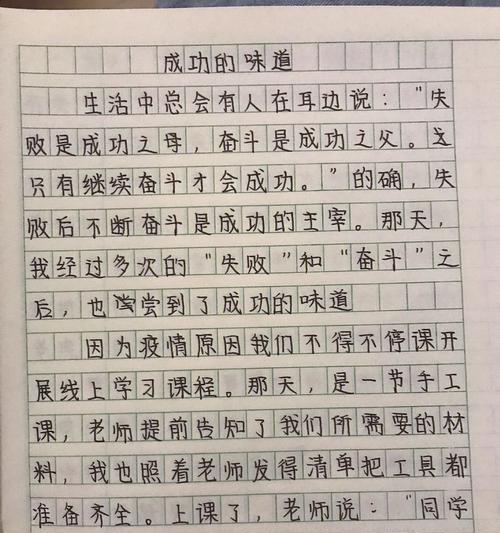 成功的味道
生活中总会有人在耳边说："失
败是成功之母，奋斗是成功之父。这
只有继续奋斗才会成功。"的确，失
败后不断奋斗是成功的主宰。那天，
我经过多次的"失败"和"奋斗"之
后，也尝到了成功的味道
因为疫情原因我们不得不停课开
展线上学习课程。那天，是一节手工
课，老师提前告知了我们所需要的材
料，我也照着老师发得清单把工具都
准备齐全。上课了，老师说："同学